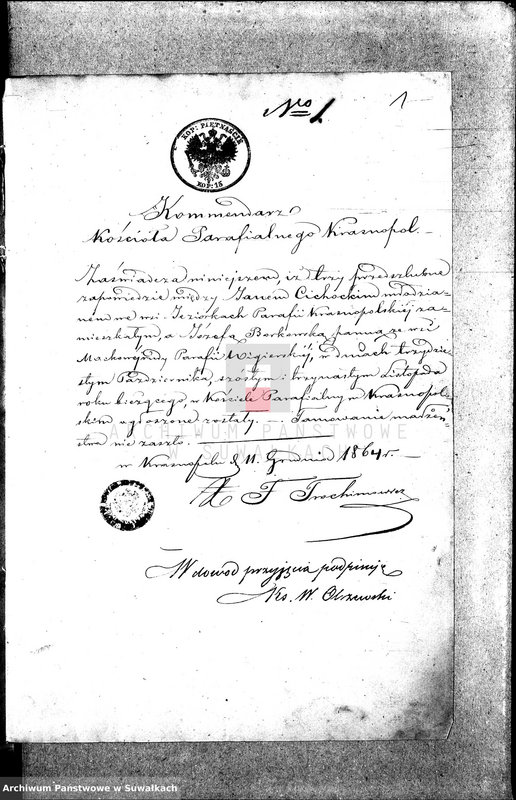 Nro 1
1
KOP: PIĘTNAŚCIE
KOP: 15
Kommendarz
Kościoła Parafialnego Krasnopol. -
Zaświadcza niniejszem, iż trzy przedszlubne
zapowiedzie między Janem Cichockim młodzia-
nem we wsi Jeziórkach Parafii Krasnopolskiej za-
mieszkałym, a Józefą Borkowską panną ze wsi
Maćkowejrudy Parafii Wigierskiej, w dniach trzydzie-
stym Października, szóstym i trzynastym Listopada
roku bieżącego, w Kościele Parafialnym w Krasnopol-
skim ogłoszone zostały. - Tamowanie małżeń-
stwa nie zaszło. -
w Krasnopolu d. 11. Grudnia 1864 r. -
X F Trochimowicz
W dowód przyjęcia podpisuję
Xs. W. Olszewski
ARCHIWUM PAŃSTWOWE
W SUWAŁKACH
Archiwum Państwowe w Suwałkach